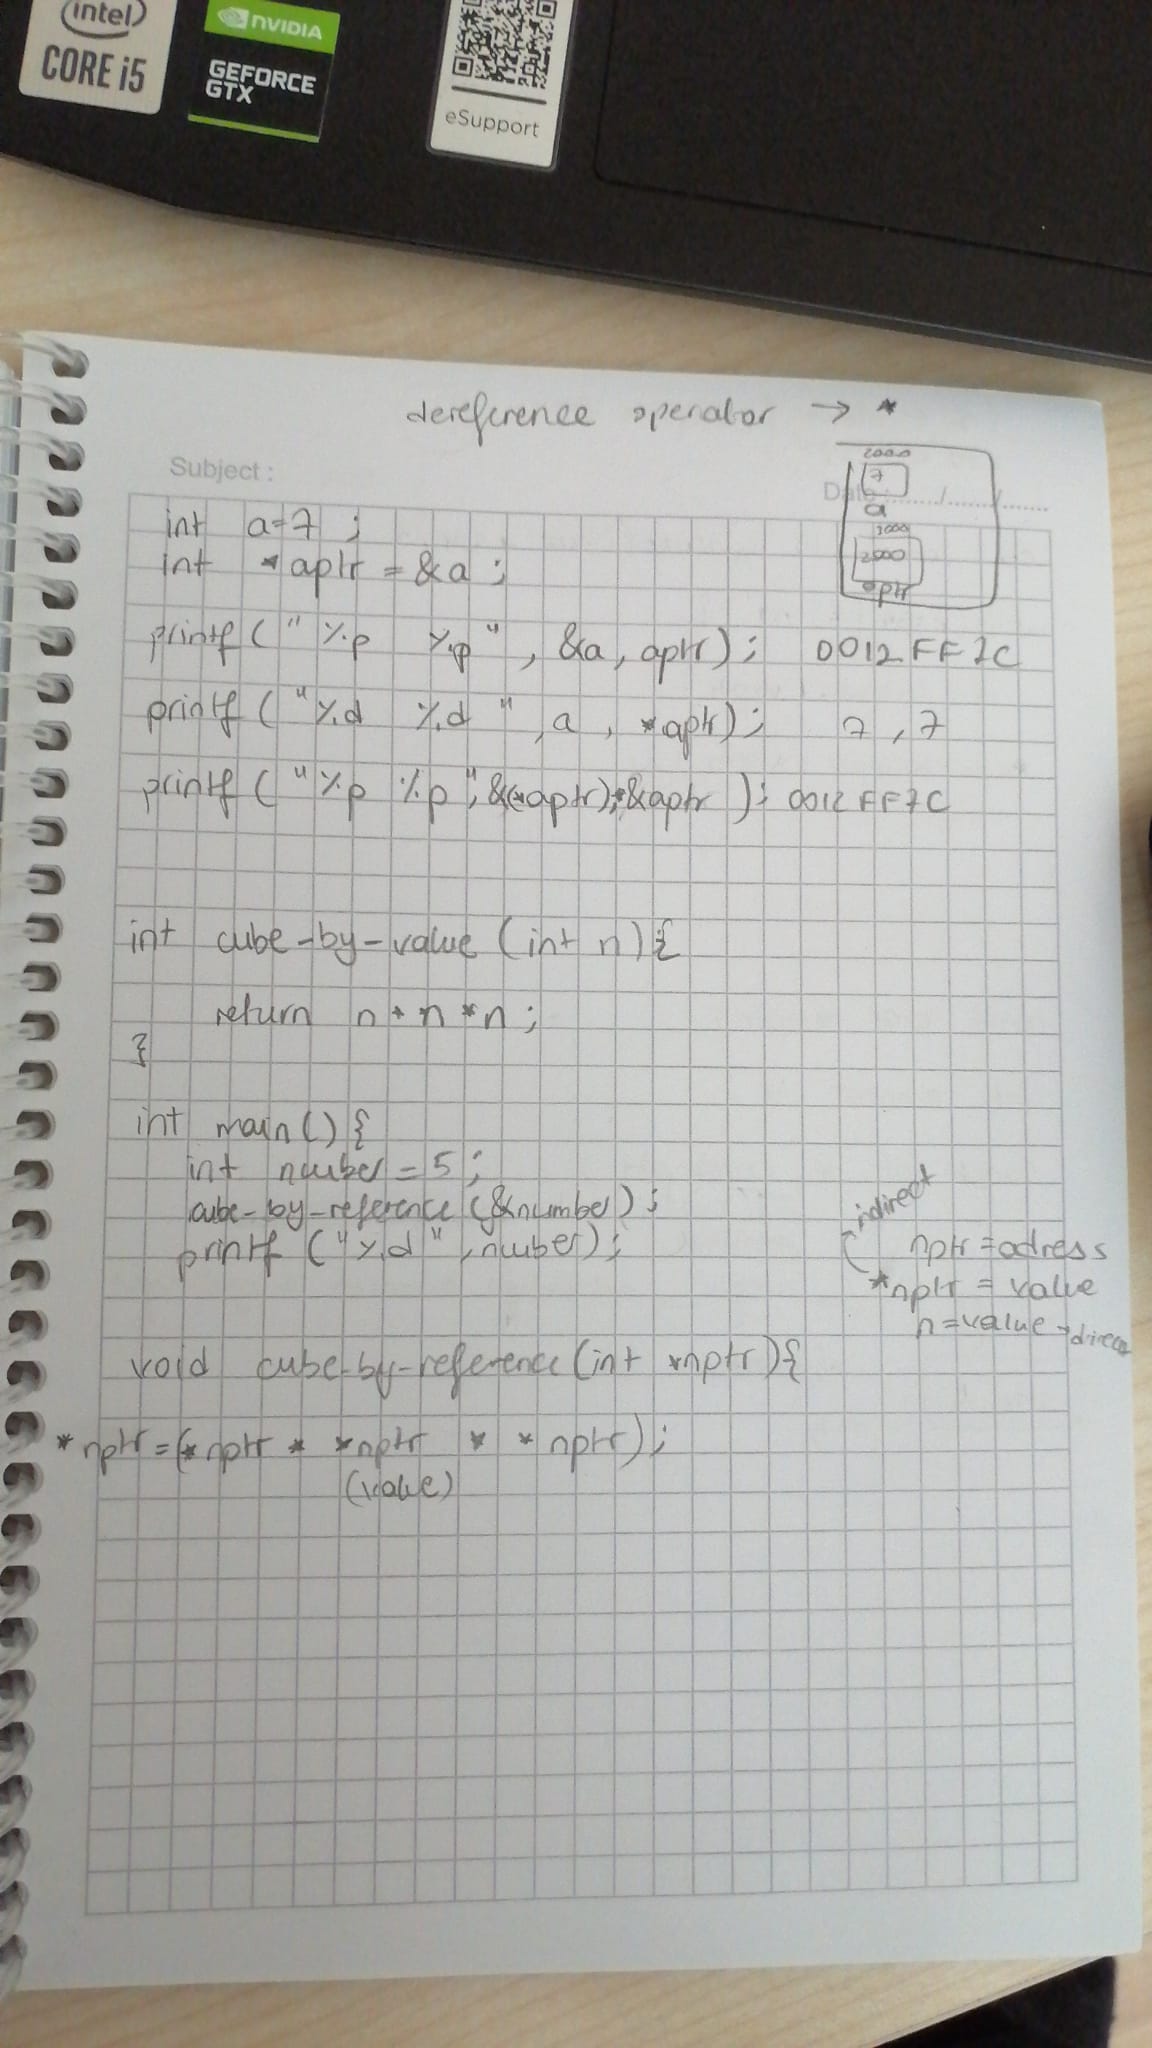 intel
CORE i5
NVIDIA
GEFORCE
GTX
eSupport
dereference operator → *
Subject :
Date : ......./......./.......
2000
7
a
3000
2000
aptr
int a=7 ;
int *aptr = &a ;
printf ( " %p %p " , &a , aptr ) ; 0012FF7C
printf ( " %d %d " , a , *aptr ) ; 7 , 7
printf ( " %p %p ", &(*aptr), *&aptr ) ; 0012FF7C
int cube-by-value (int n) {
return n * n * n ;
}
int main() {
int number = 5 ;
cube-by-reference (&number) ;
printf ( " %d " , number) ;
indirect
nptr = adress
*nptr = value
n = value → direct
void cube-by-reference (int *nptr) {
*nptr = (*nptr * *nptr * *nptr) ;
(value)